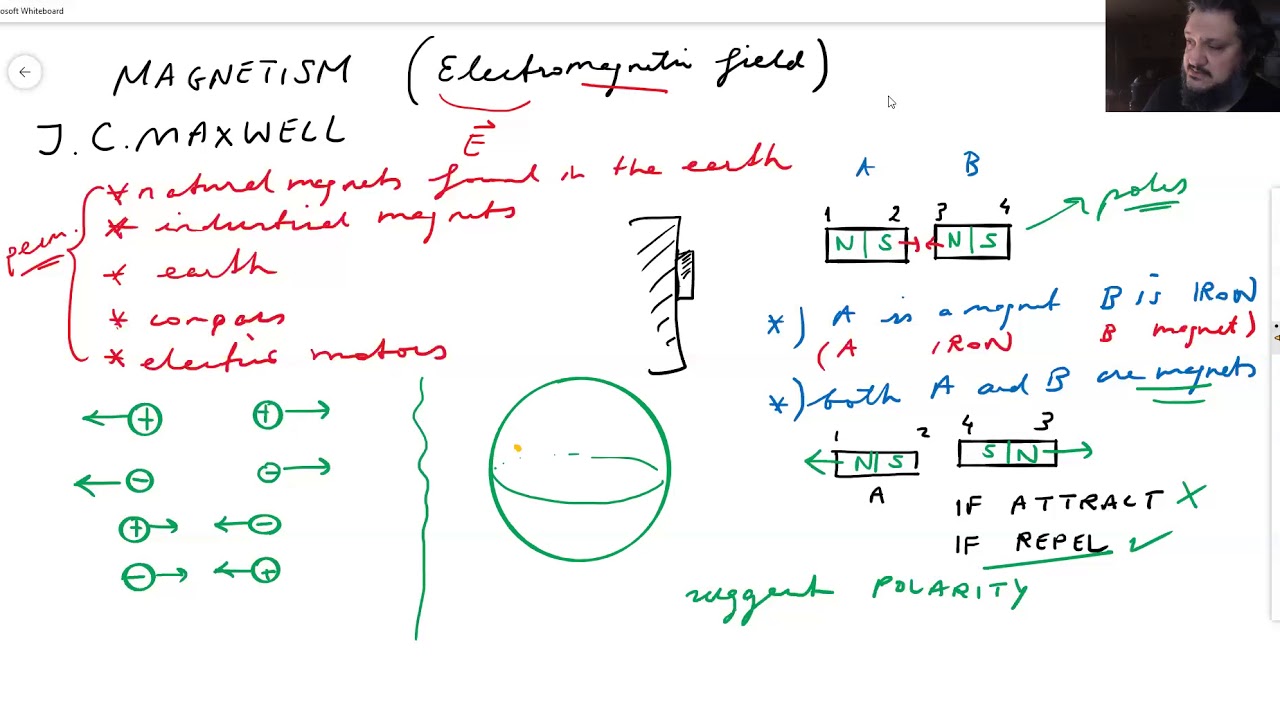 osoft Whiteboard
MAGNETISM (Electromagnetic field)
E
J. C. MAXWELL
perm.
* natural magnets found in the earth
* industrial magnets
* earth
* compass
* electric motors
+ +
- -
+ -
- +
A B
1 2 3 4
N S N S
poles
*) A is a magnet B is IRON
(A IRON B magnet)
*) both A and B are magnets
1 2 4 3
N S S N
A
IF ATTRACT X
IF REPEL ✓
suggent POLARITY